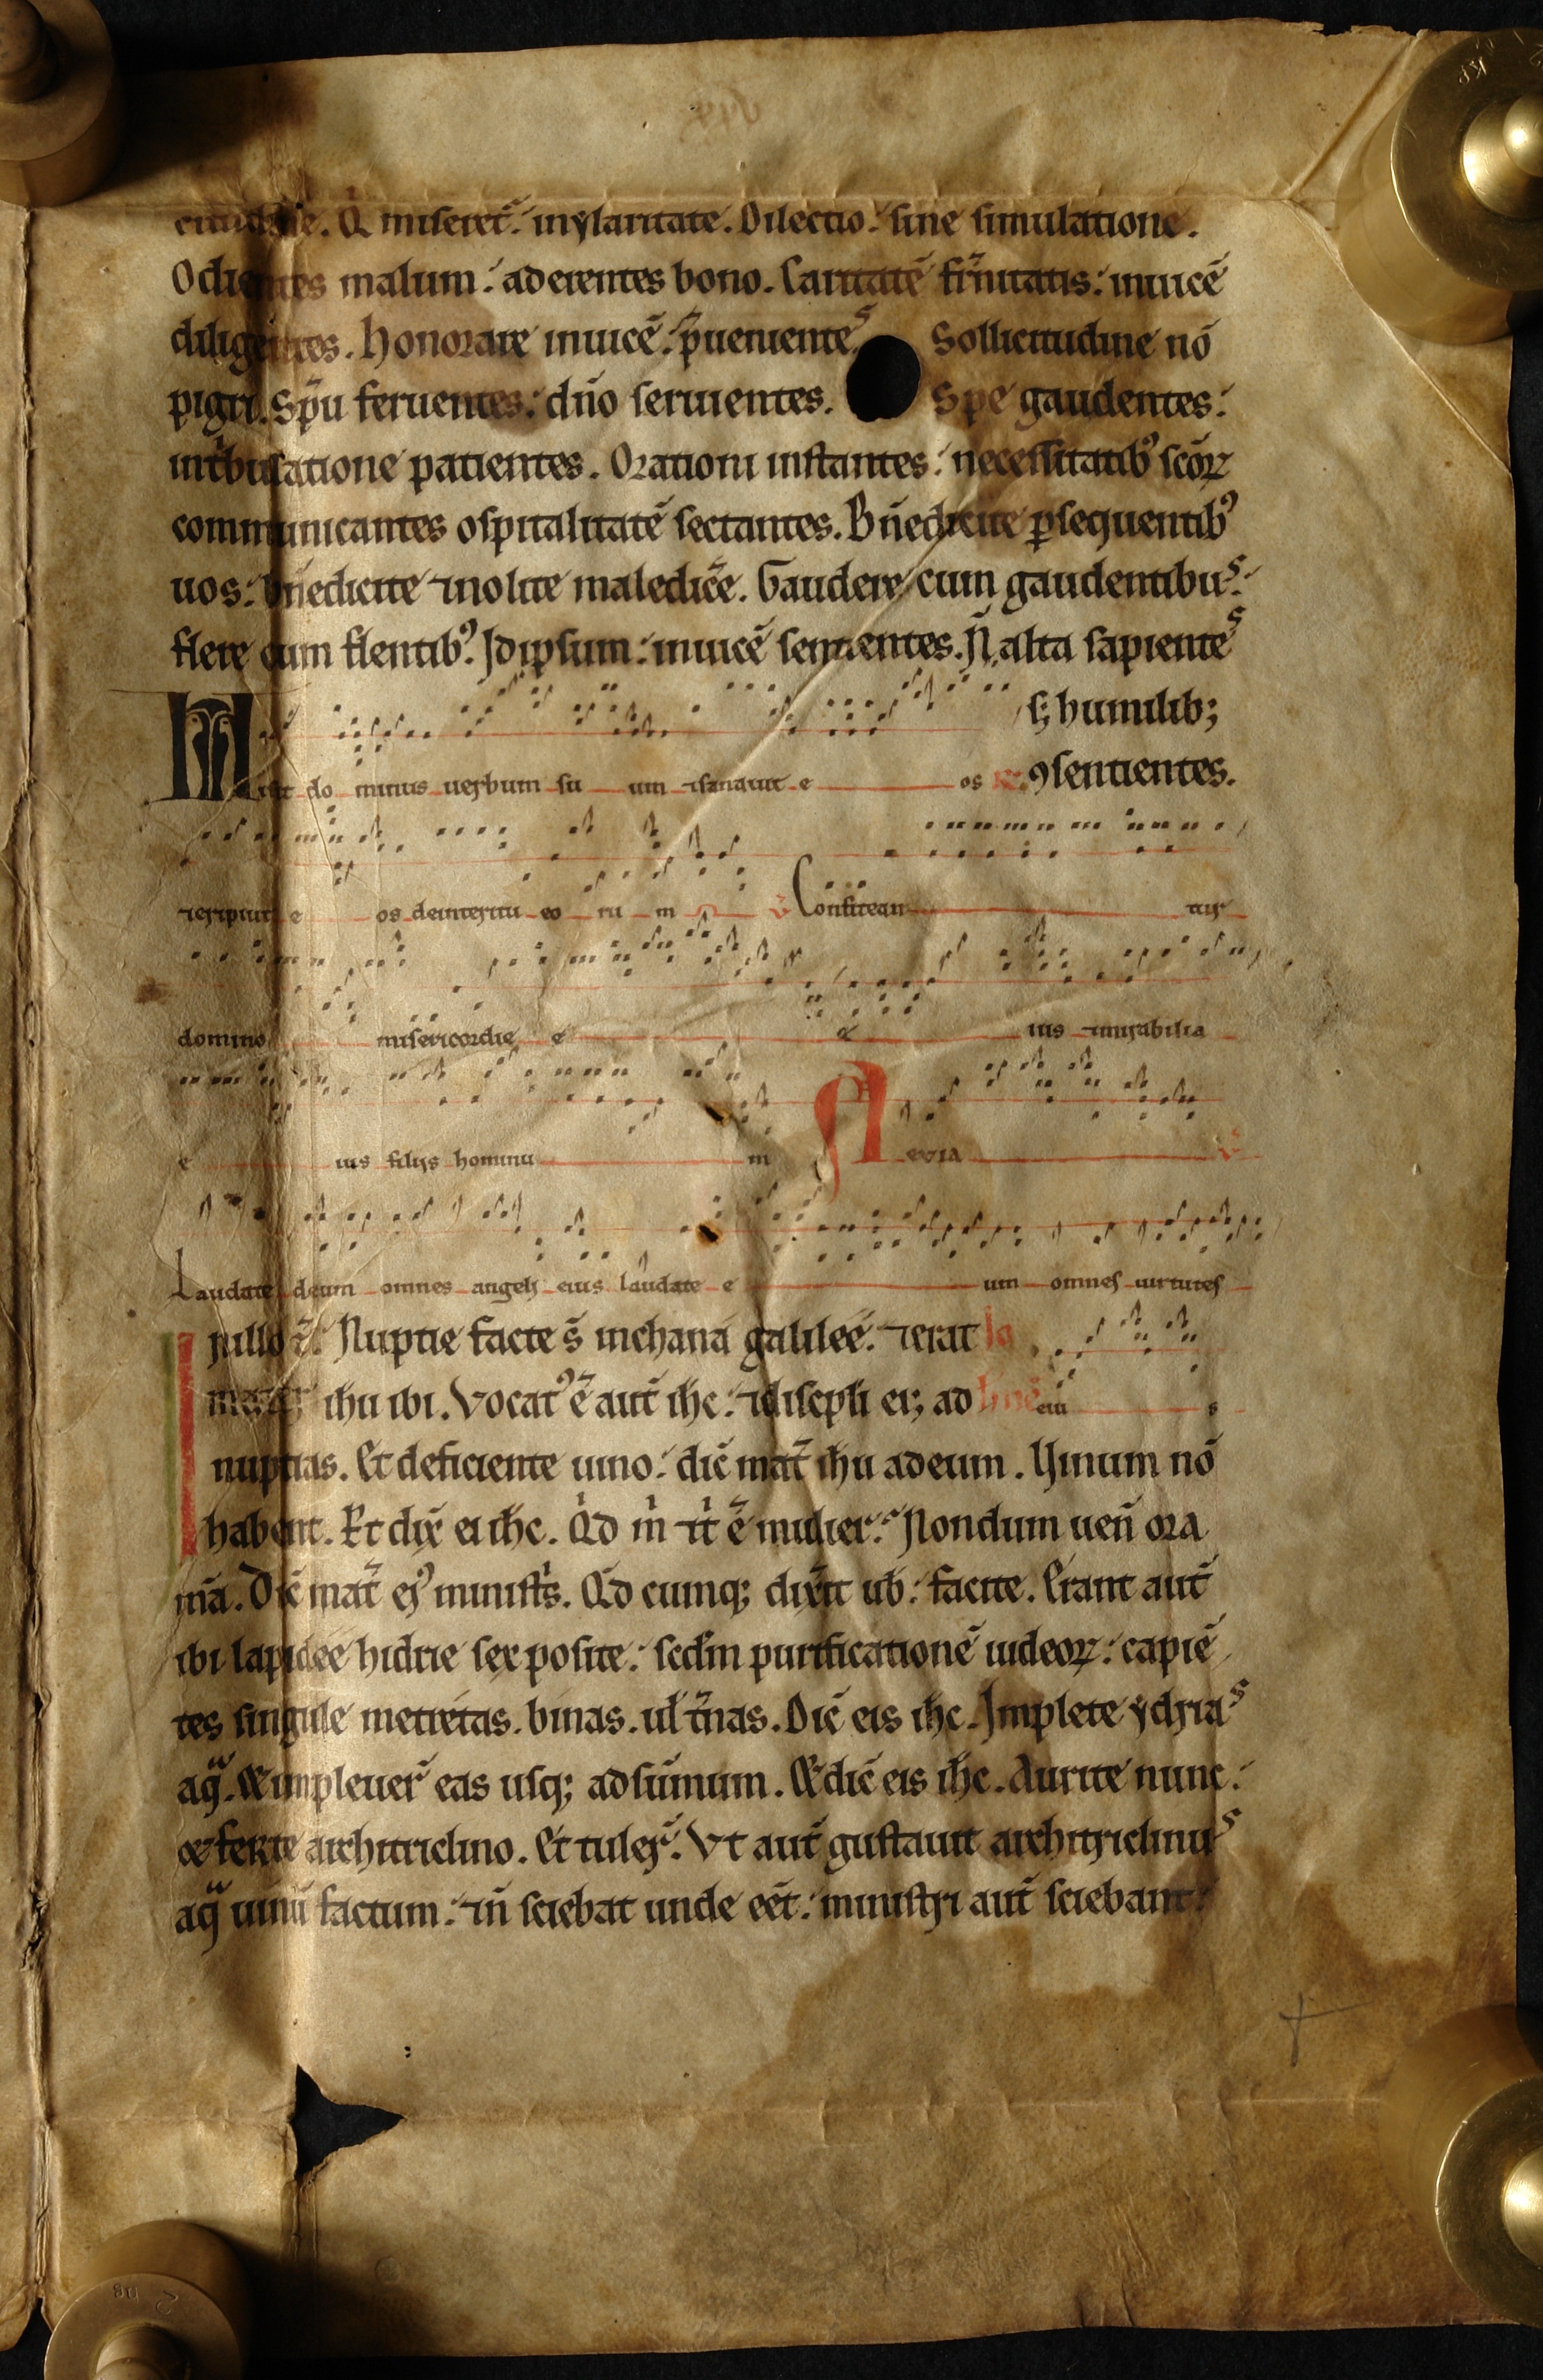 citudine. Q̇ miseret᷑: inẏlaritate. Dilectio: sine simulatione.
Odientes malum: aderentes bono. Caritatē fr̄nitatis: inuicē
diligentes. Honorare inuicē: p̄uenientes. Sollicitudine nō
pigri. Sp̄u feruentes: dn̄o seruientes. Spe gaudentes:
intͥbulatione patientes. Orationi instantes: necessitatibꝰ scōꝝ
communicantes ospitalitatē sectantes. Bn̄edicite ꝑsequentibꝰ
uos: bn̄edicite ⁊nolite maledic̄e. Gaudere cum gaudentibus:
flere cum flentibꝰ. Idipsum: inuicē sentientes. N̄ alta sapientes
s; humilib;
Misit do minus uerbum su um ⁊sanauit e os ꝯsentientes.
⁊eripuit e os deinteritu eo ru m V Confitean tur
domino misericordie e e ius ⁊mirabilia
e ius filijs hominu m Aevia V
Laudate deum omnes angeli eius laudate e um omnes uirtutes
In illo t̄. Nuptie facte s̄ inchana galileē: ⁊erat Io
mater ihu ibi. Vocatꝰ ē aut̄ ihc: ⁊discipli ei; ad hnē eiu s
nuptias. Et deficiente uino: dic̄ mat̄ ihu adeum. Uinum nō
habent. Et dix̄ ei ihc. Qͥd m̊ ⁊t̊ ē mulier: Nondum uen̄ ora
m̄a. Dic̄ mat̄ eꝰ ministͥs. Qd̄ cumq; dix̄it ub̄: facite. Erant aut̄
ibi lapidee hidrie sex posite: scd̄m purificationē iudeoꝝ: capiē
tes singule metretas. binas. ul̄ t̄nas. Dic̄ eis ihc. Implete ẏdrias
aq̄. & impleuer᷑ eas usq; adsūmum. & dic̄ eis ihc. Aurite nunc:
& ferte architriclino. Et tuler᷑. Vt aut̄ gustauit architriclinus
aq̄ uinū factum: ⁊n̄ sciebat unde eēt: ministri aut̄ sciebant: